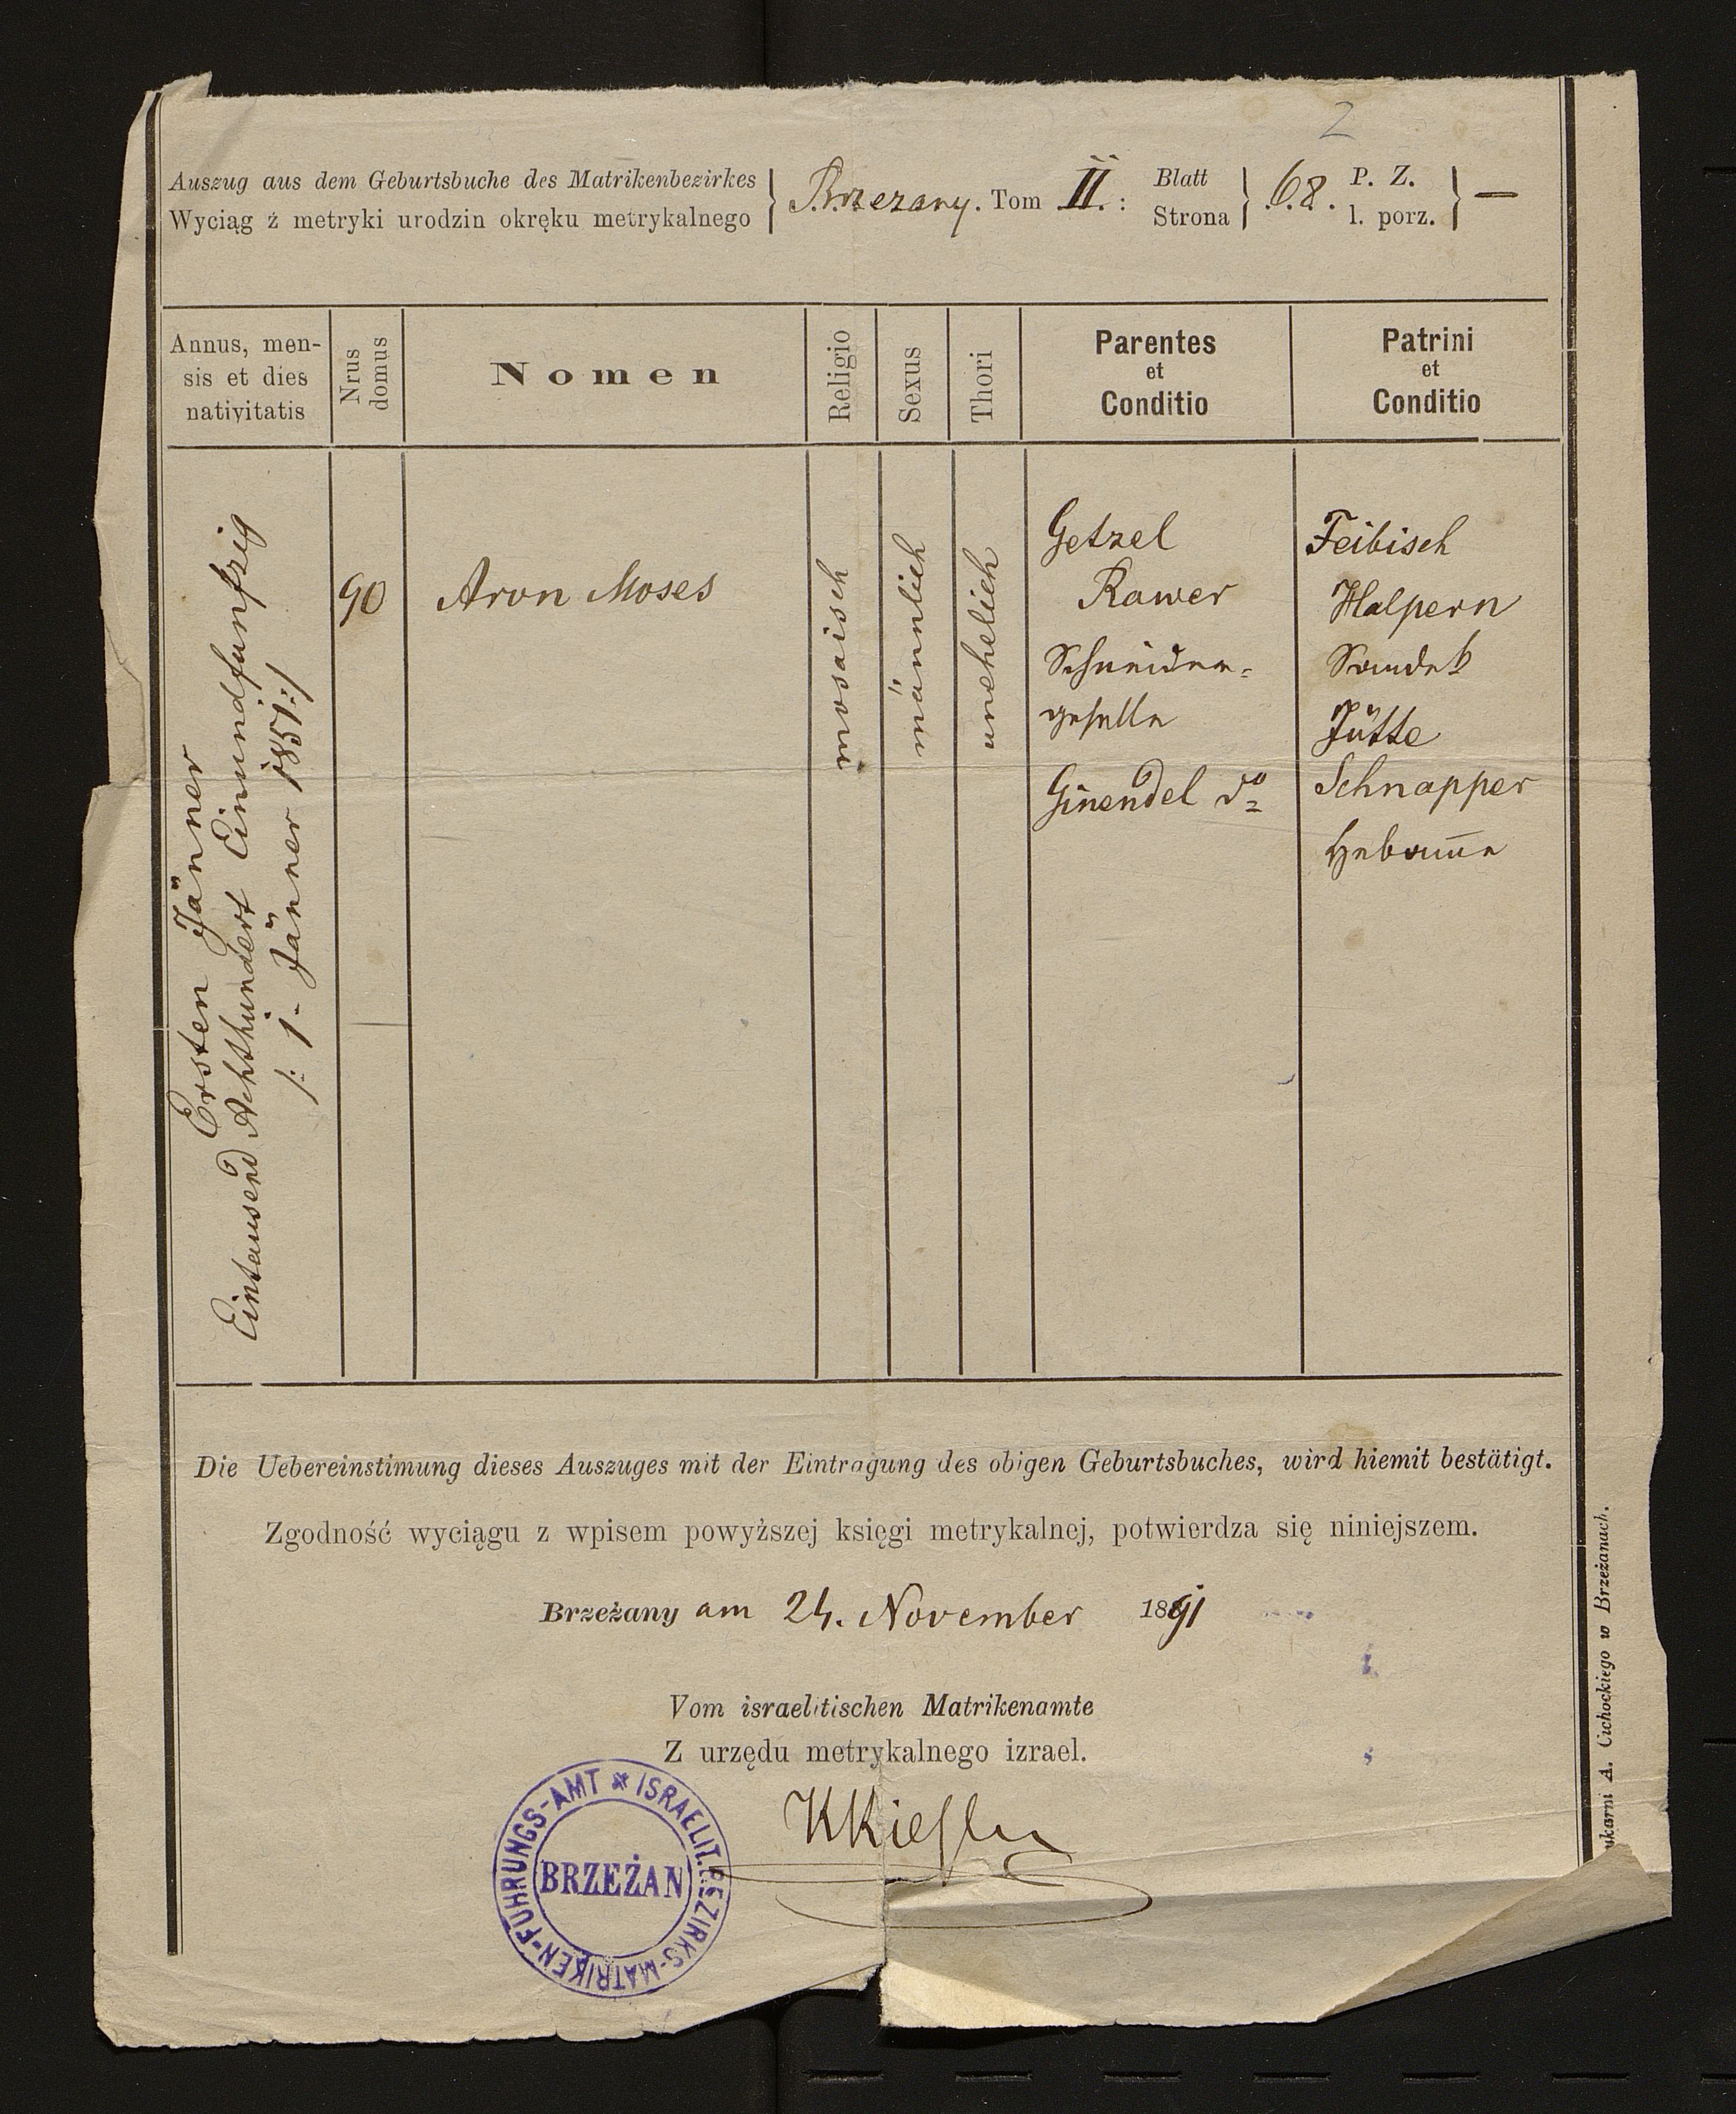 2
Auszug aus dem Geburtsbuche des Matrikenbezirkes
Wyciąg ź metryki urodzin okręku metrykalnego
Brzezany. Tom II. :
Blatt
Strona
68.
P. Z.
l. porz.
—
Annus, men-
sis et dies
nativitatis
Nrus
domus
Nomen
Religio
Sexus
Thori
Parentes
et
Conditio
Patrini
et
Conditio
Ersten Jänner
Eintausend Achthundert Einundfunfzig
/: 1. Jänner 1851 :/
90
Aron Moses
mosaisch
männlich
unehelich
Getzel
Rawer
Schneider=
geselle
Ginendel do
Feibisch
Halpern
Sandek
Jütte
Schnapper
Hebam̅e
Die Uebereinstimung dieses Auszuges mit der Eintragung des obigen Geburtsbuches, wird hiemit bestätigt.
Zgodność wyciągu z wpisem powyższej księgi metrykalnej, potwierdza się niniejszem.
Brzeżany am 24. November 1891
Vom israelitischen Matrikenamte
Z urzędu metrykalnego izrael.
ISRAELIT. BEZIRKS-MATRIKEN-FÜHRUNGS-AMT
BRZEŻAN
ukarni A. Cichockiego w Brzeżanach.